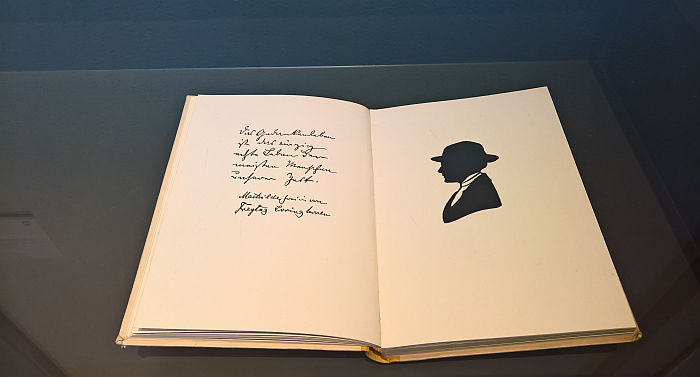 Das Gedankenleben
ist das einzig
echte Leben der
meisten Menschen
unserer Zeit.
Mathilde Freiin von
Freytag Loringhoven